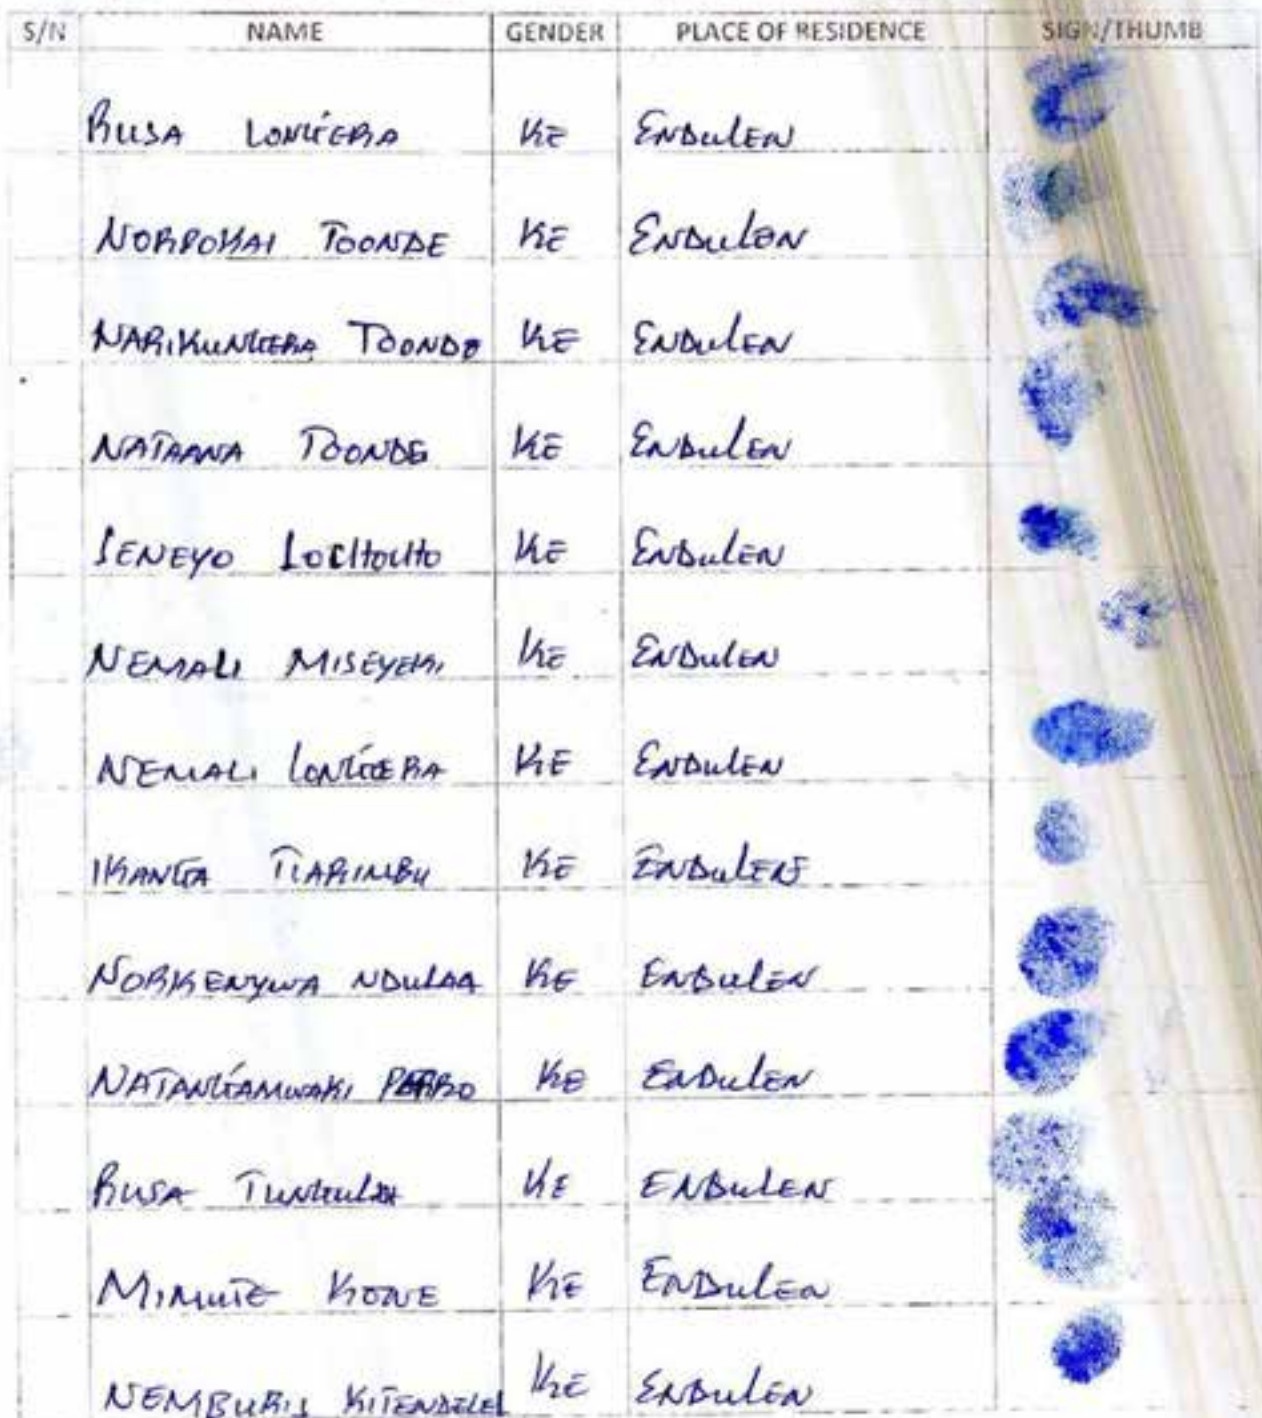 S/N NAME GENDER PLACE OF RESIDENCE SIGN/THUMB
RUSA LONGERA KE ENDULEN
NORPOKAI TOONDE KE ENDULEN
NARIKUNGERA TOONDE KE ENDULEN
NATAANA TOONDE KE ENDULEN
SENEYO KE ENDULEN
NEMALI MISEYEKI KE ENDULEN
NEMALI LONGERA KE ENDULEN
IKANGA TIARIMBU KE ENDULEN
NORKENYWA NDULAA KE ENDULEN
NATANGAMWAKI KE ENDULEN
RUSA KE ENDULEN
MINUTE KONE KE ENDULEN
NEMBURIS KITENDELEL KE ENDULEN